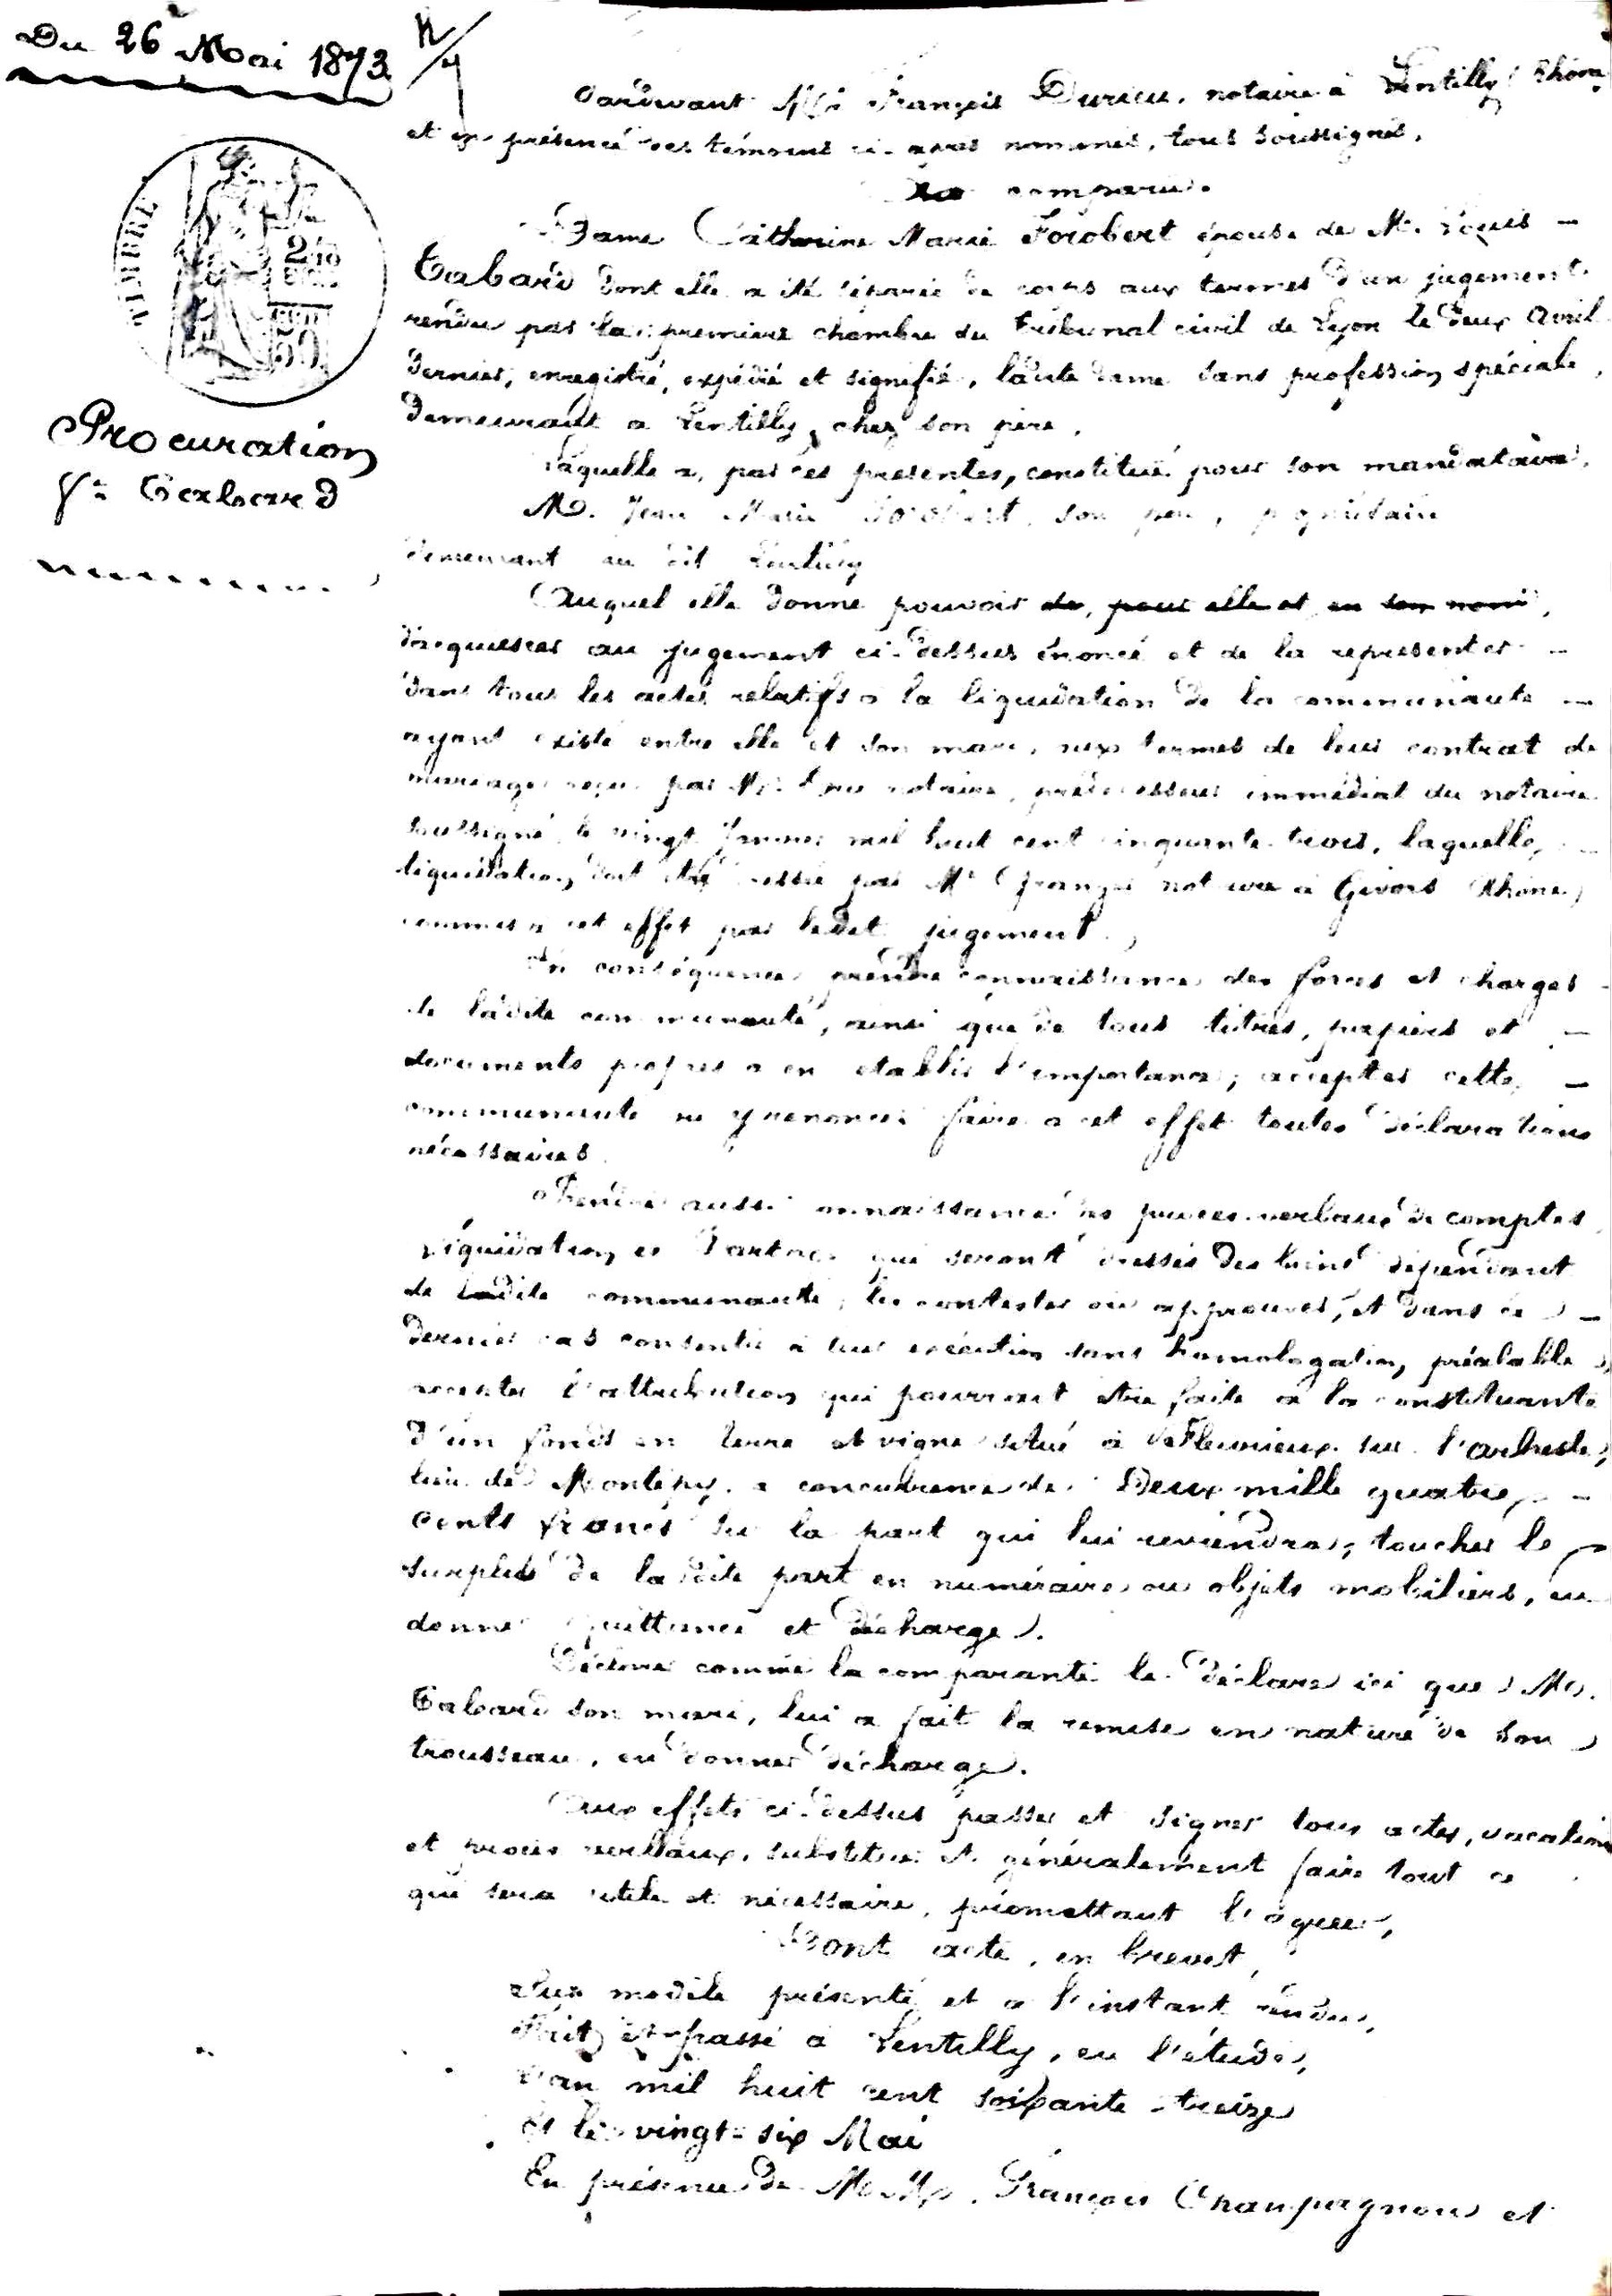 Du 26 Mai 1873
TIMBRE
50
Procuration
Fe Tabard
Pardevant Me François Durieu, notaire à Lentilly (Rhône
et en présence des témoins ci-après nommés, tous soussignés,
a comparu.
Dame Catherine Marie Forobert épouse de M. Louis
Tabard dont elle a été séparée de corps aux termes d'un jugement
rendu par la première chambre du tribunal civil de Lyon le deux Avril
dernier, enregistré, expédié et signifié, ladite dame sans profession spéciale,
demeurant à Lentilly, chez son père.
Laquelle a, par ces présentes, constitué pour son mandataire,
M. Jean Marie Forobert, son père, propriétaire
demeurant au dit Lentilly
Auquel elle donne pouvoir de, pour elle et en son nom,
d'acquiescer au jugement ci-dessus énoncé et de la représenter
dans tous les actes relatifs à la liquidation de la communauté
ayant existé entre elle et son mari, aux termes de leur contrat de
mariage reçu par Me notaire, prédécesseur immédiat du notaire
soussigné le vingt Janvier mil huit cent cinquante trois, laquelle
liquidation doit être dressée par Me notaire à Givors (Rhône)
commis à cet effet par ledit jugement.
En conséquence prendre connaissance des forces et charges
de ladite communauté, ainsi que de tous titres, papiers et
documents propres à en établir l'importance, accepter cette
communauté ou y renoncer faire à cet effet toutes déclarations
nécessaires.
Prendre aussi connaissance des procès-verbaux de comptes
liquidation et partage qui seront dressés des biens dépendant
de ladite communauté, les contester ou approuver, et dans ce
dernier cas consentir à leur exécution sans homologation préalable
accepter l'attribution qui pourrait être faite à la constituante
d'un fonds en terre et vigne situé à Fleurieux sur l'arbresle,
lieu de Montépy, à concurrence de Deux mille quatre
cents francs sur la part qui lui reviendra, toucher le
surplus de la dite part en numéraire ou objets mobiliers, en
donner quittance et décharge.
Déclarer comme la comparante le déclare ici que M.
Tabard son mari, lui a fait la remise en nature de son
trousseau, en donner décharge.
Aux effets ci-dessus passer et signer tous actes, vacations
et procès verbaux, substituer et généralement faire tout ce
qui sera utile et nécessaire, promettant l'agréer,
Dont acte, en brevet,
Sur modèle présenté et à l'instant rendu,
Fait et passé à Lentilly, en l'étude,
L'an mil huit cent soixante-treize
Et le vingt-six Mai
En présence de MM. François Champagnon et